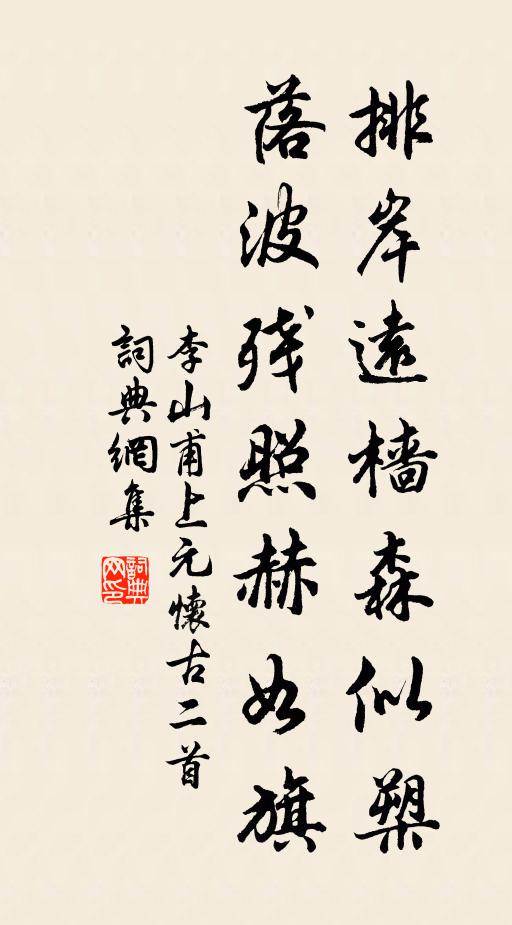 排岸遠檣森似槊
落波殘照赫如旗
李山甫上元懷古二首
詞典網集
詞典網印